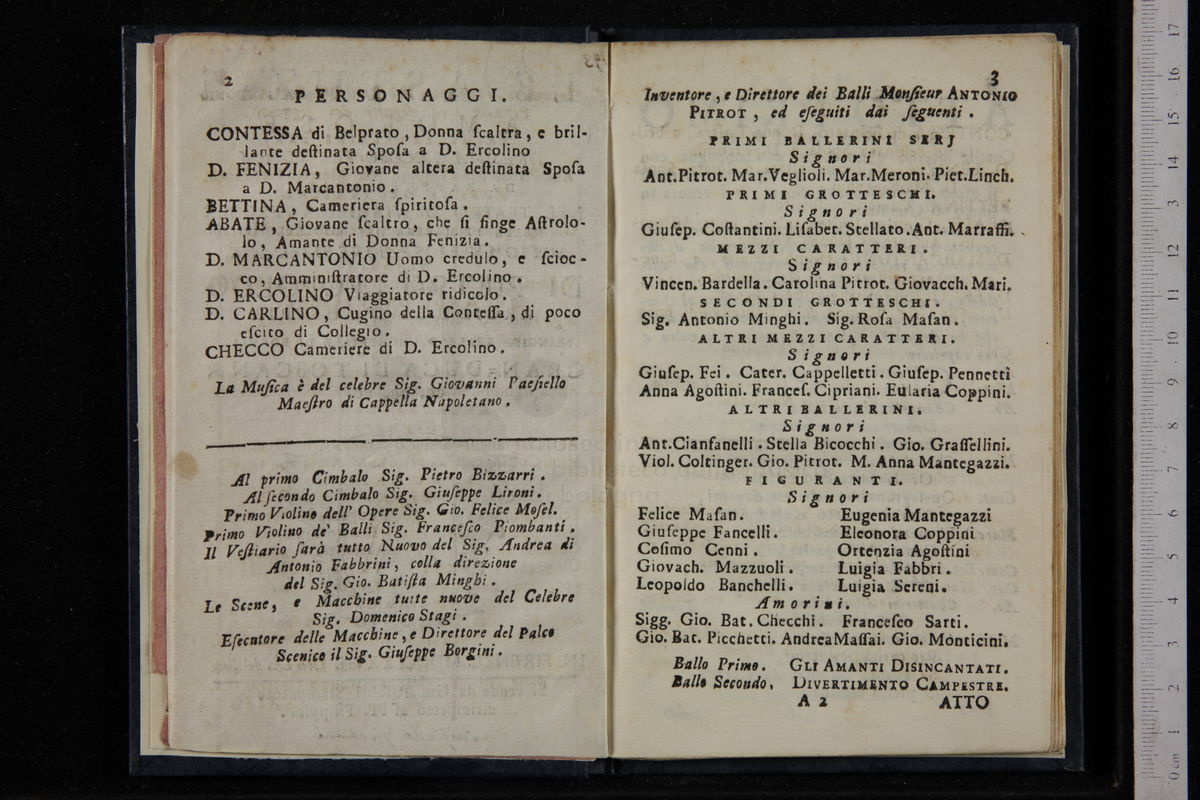 2
PERSONAGGI.
CONTESSA di Belprato, Donna ſcaltra, e bril-
lante deſtinata Spoſa a D. Ercolino
D. FENIZIA, Giovane altera deſtinata Spoſa
a D. Marcantonio.
BETTINA, Cameriera ſpiritoſa.
ABATE, Giovane ſcaltro, che ſi finge Aſtrolo-
lo, Amante di Donna Fenizia.
D. MARCANTONIO Uomo credulo, e ſcioc-
co, Amminiſtratore di D. Ercolino.
D. ERCOLINO Viaggiatore ridicolo.
D. CARLINO, Cugino della Conteſſa, di poco
eſcito di Collegio.
CHECCO Cameriere di D. Ercolino.
La Muſica è del celebre Sig. Giovanni Paeſiello
Maeſtro di Cappella Napoletano.
Al primo Cimbalo Sig. Pietro Bizzarri.
Al ſecondo Cimbalo Sig. Giuſeppe Lironi.
Primo Violino dell' Opere Sig. Gio. Felice Moſel.
Primo Violino de' Balli Sig. Franceſco Piombanti.
Il Veſtiario ſarà tutto Nuovo del Sig. Andrea di
Antonio Fabbrini, colla direzione
del Sig. Gio. Batiſta Minghi.
Le Scene, e Macchine tutte nuove del Celebre
Sig. Domenico Stagi.
Eſecutore delle Macchine, e Direttore del Palco
Scenico il Sig. Giuſeppe Borgini.
3
Inventore, e Direttore dei Balli Monſieur ANTONIO
PITROT, ed eſeguiti dai ſeguenti.
PRIMI BALLERINI SERJ
Signori
Ant.Pitrot. Mar.Veglioli. Mar.Meroni. Piet.Linch.
PRIMI GROTTESCHI.
Signori
Giuſep. Coſtantini. Liſaber. Stellato. Ant. Marraffi.
MEZZI CARATTERI.
Signori
Vincen. Bardella. Carolina Pitrot. Giovacch. Mari.
SECONDI GROTTESCHI.
Sig. Antonio Minghi. Sig. Roſa Maſan.
ALTRI MEZZI CARATTERI.
Signori
Giuſep. Fei. Cater. Cappelletti. Giuſep. Pennetti
Anna Agoſtini. Franceſ. Cipriani. Eularia Coppini.
ALTRI BALLERINI.
Signori
Ant.Cianfanelli. Stella Bicocchi. Gio. Graſſellini.
Viol. Coltinger. Gio. Pitrot. M. Anna Mantegazzi.
FIGURANTI.
Signori
Felice Maſan. Eugenia Mantegazzi
Giuſeppe Fancelli. Eleonora Coppini
Coſimo Cenni. Ortenzia Agoſtini
Giovach. Mazzuoli. Luigia Fabbri.
Leopoldo Banchelli. Luigia Sereni.
Amorini.
Sigg. Gio. Bat. Checchi. Franceſco Sarti.
Gio. Bat. Picchetti. Andrea Maſſai. Gio. Monticini.
Ballo Primo. GLI AMANTI DISINCANTATI.
Ballo Secondo. DIVERTIMENTO CAMPESTRE.
A 2 ATTO
0 cm 1 2 3 4 5 6 7 8 9 10 11 12 13 14 15 16 17